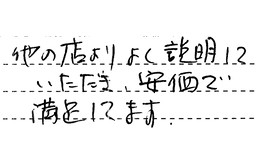 他の店よりよく説明して
いただき、安価で
満足してます.